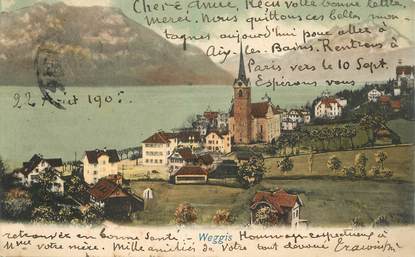 Chère amie, Reçu votre bonne lettre,
Merci. Nous quittons ces belles mon
tagnes aujourd'hui pour aller à
Aix-les-Bains. Rentrons à
Paris vers le 10 Sept.
Espérons vous
22 Août 1905.
retrouver en bonne santé. Hommages respectueux à
Mme votre mère. Mille amitiés de votre tout dévoué
Weggis